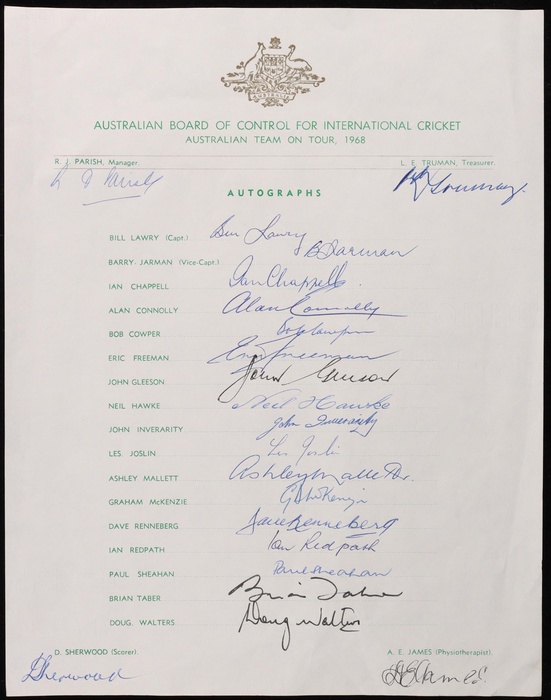 AUSTRALIA
AUSTRALIAN BOARD OF CONTROL FOR INTERNATIONAL CRICKET
AUSTRALIAN TEAM ON TOUR, 1968
R. J. PARISH, Manager. L. E. TRUMAN, Treasurer.
R J Parish L E Truman
AUTOGRAPHS
BILL LAWRY (Capt.) Bill Lawry
BARRY JARMAN (Vice-Capt.) B Jarman
IAN CHAPPELL Ian Chappell
ALAN CONNOLLY Alan Connolly
BOB COWPER Bob Cowper
ERIC FREEMAN Eric Freeman
JOHN GLEESON John Gleeson
NEIL HAWKE Neil Hawke
JOHN INVERARITY John Inverarity
LES JOSLIN Les Joslin
ASHLEY MALLETT Ashley Mallett
GRAHAM McKENZIE G D McKenzie
DAVE RENNEBERG Dave Renneberg
IAN REDPATH Ian Redpath
PAUL SHEAHAN Paul Sheahan
BRIAN TABER Brian Taber
DOUG. WALTERS Doug Walters
D. SHERWOOD (Scorer). A. E. JAMES (Physiotherapist).
D Sherwood A E James